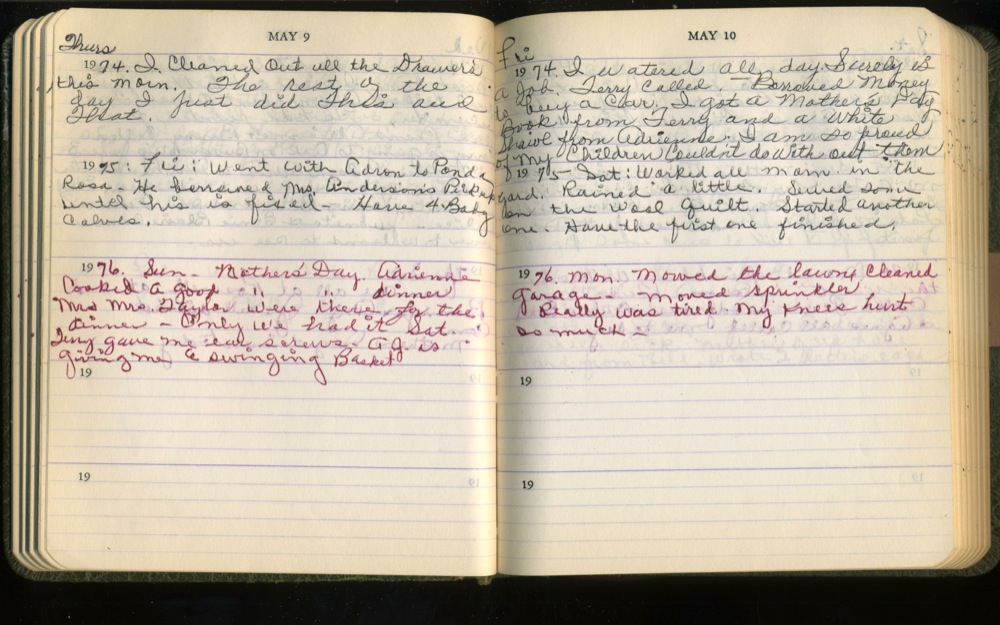 MAY 9
Thurs
1974. I Cleaned Out all the Drawers
this Morn. The rest of the
day I just did This and
That.
1975: Fri: Went with Adron to Ponda
Rosa - He borrowed Mrs. Anderson's Pickup
until his is fixed - Have 4 Baby
Calves.
1976. Sun - Mother's Day. Adrienne
Cooked a good " " dinner
Mr & Mrs. Taylor were there for the
dinner - Only we had it Sat.
gave me ear screws. A.J. is
giving me a swinging Basket
19
19
MAY 10
Fri
1974. I watered all day. Surely is
a job. Terry Called. Borrowed Money
to buy a Car. I got a Mother's Day
Book from Terry and a White
Shawl from Adrienne. I am so proud
of my Children Couldn't do with out them
1975 - Sat: Worked all morn in the
yard. Rained a little. Sewed some
on the Wool Quilt. Started another
one. Have the first one finished.
1976. Mon. Mowed the lawn, Cleaned
garage - Moved sprinkler
Really was tired. My knees hurt
so much -
19
19